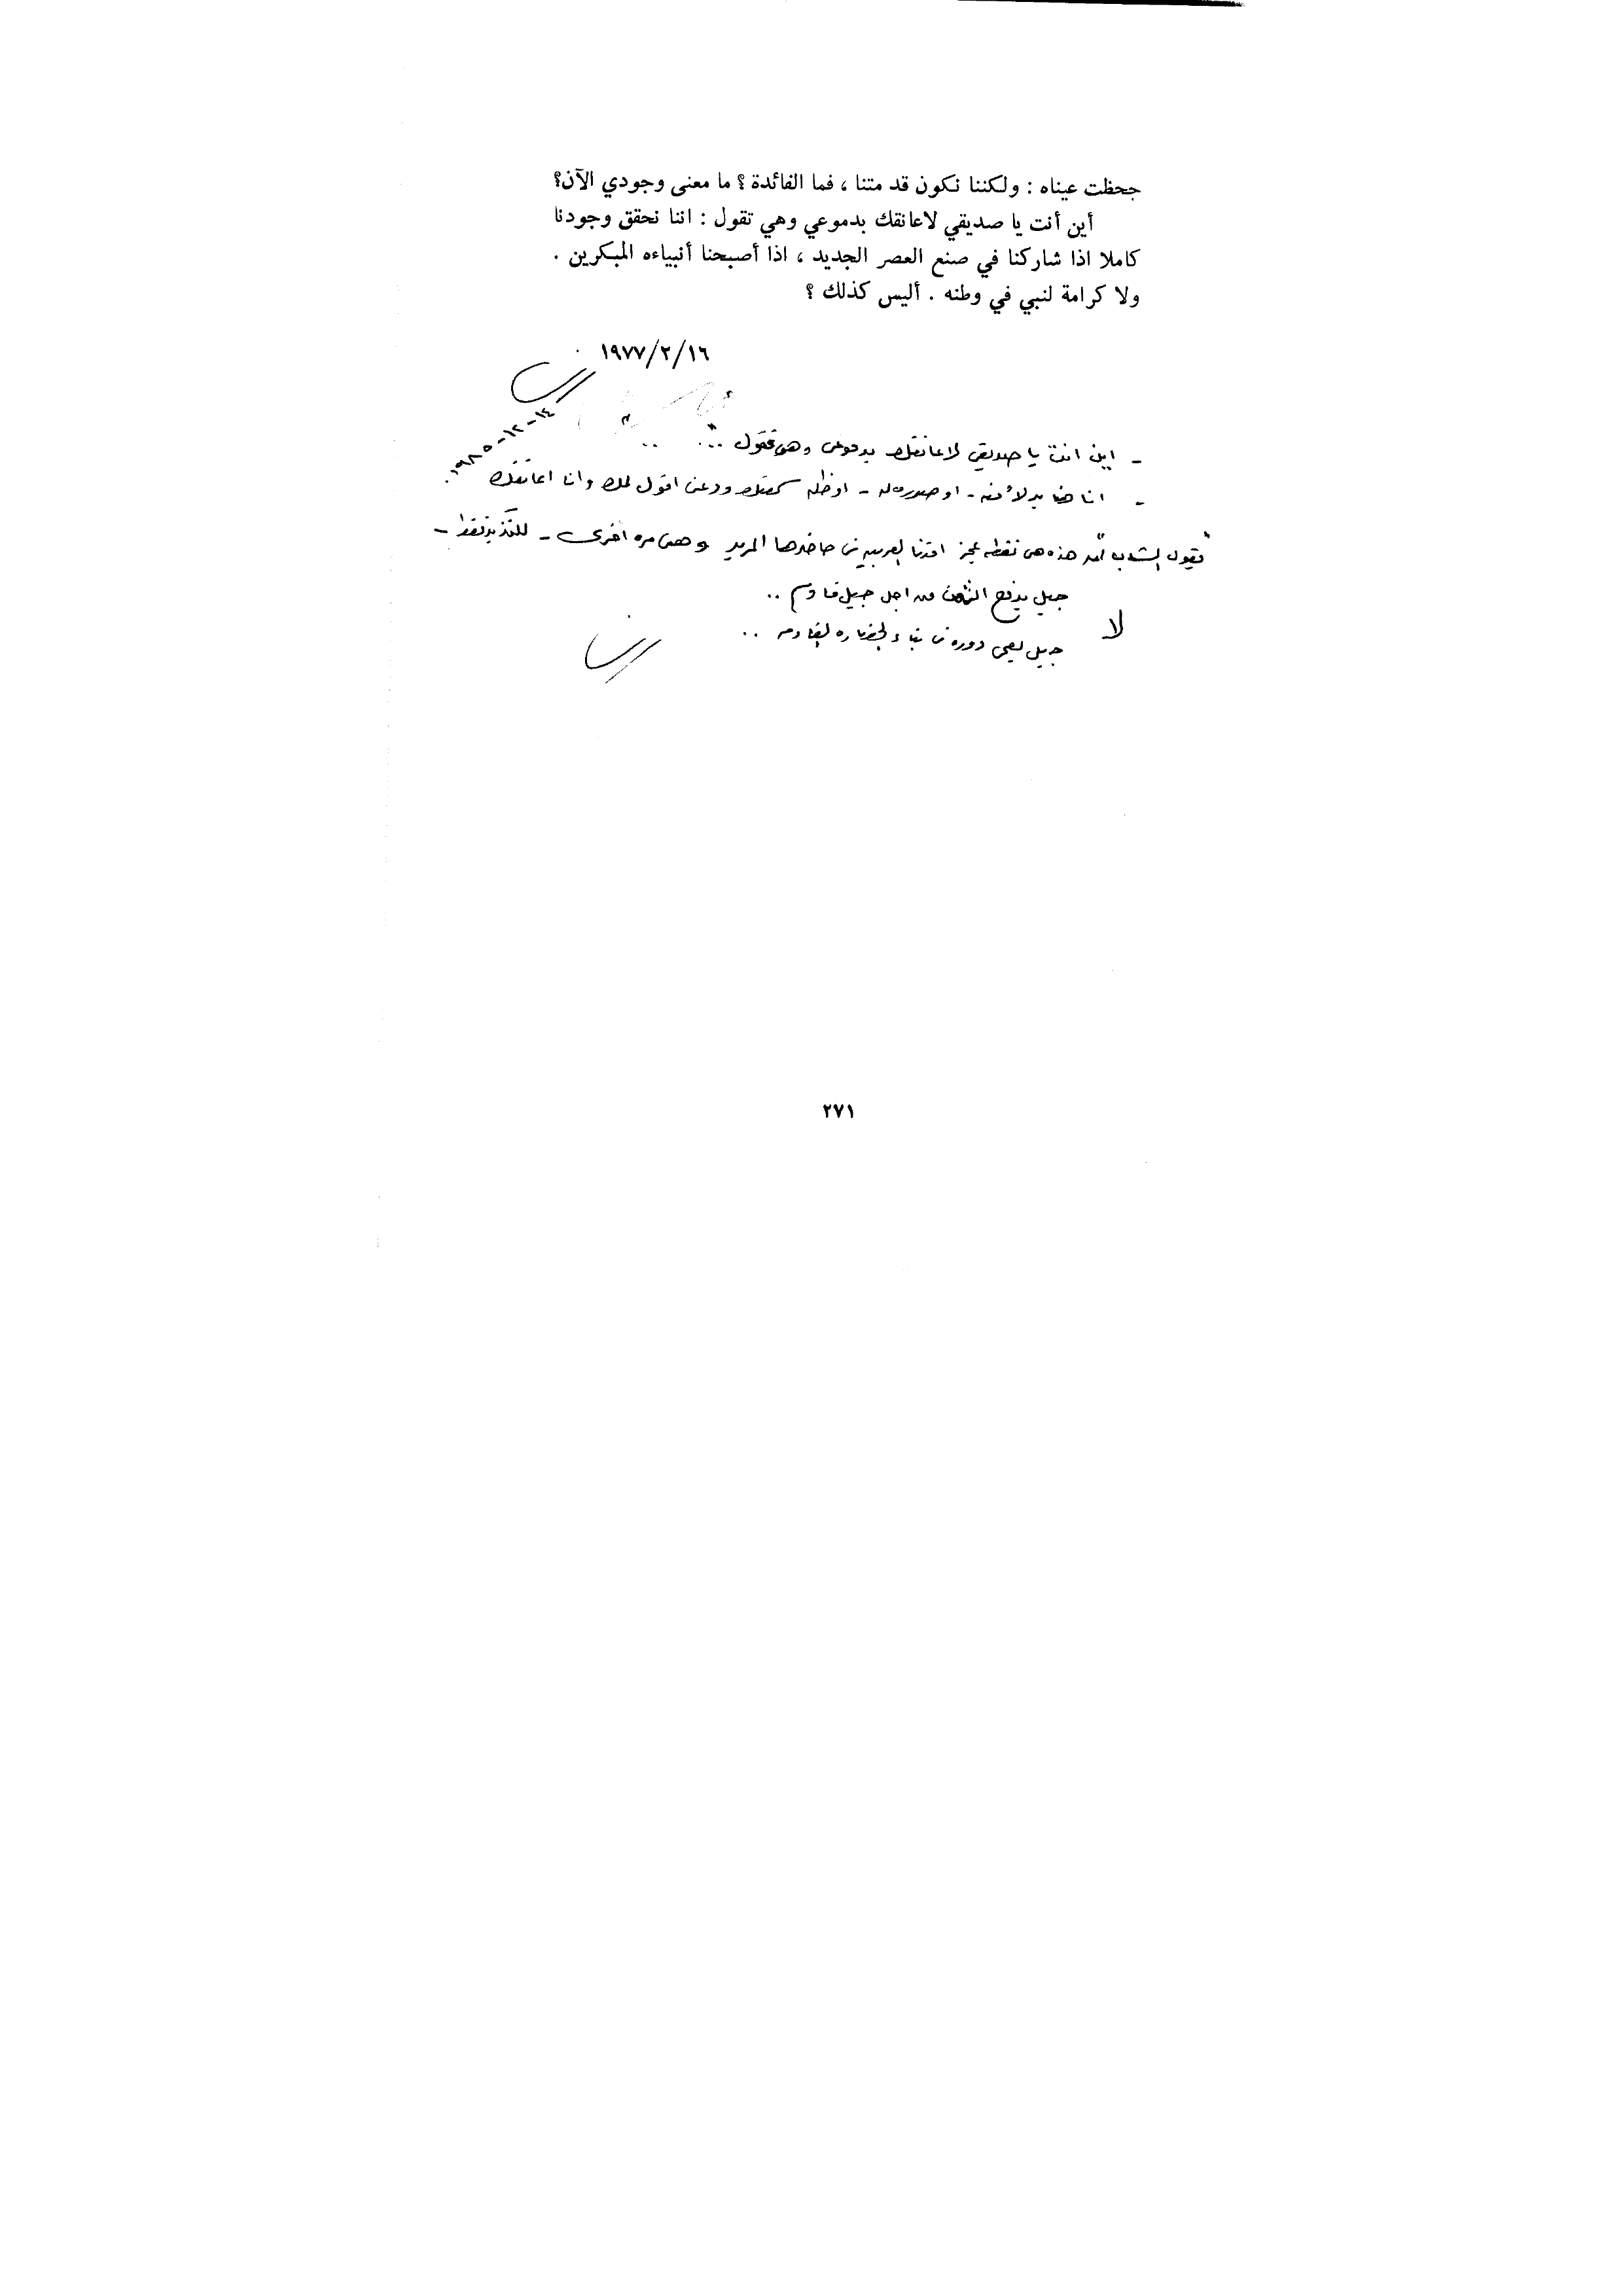 جحظت عيناه : ولكننا نكون قد متنا ، فما الفائدة ؟ ما معنى وجودي الآن؟
أين أنت يا صديقي لاعانقك بدموعي وهي تقول : اننا نحقق وجودنا
كاملا اذا شاركنا في صنع العصر الجديد ، اذا أصبحنا أنبياءه المبكرين .
ولا كرامة لنبي في وطنه . أليس كذلك ؟
١٩٧٧/٢/١٦
١٤-١٢-١٩٨٥
- اين انت يا صديقي لاعانقك بدموعي وهي تقول ...
- انا هنا بدلا منه - او صوره له - ودعني اقول لك وانا اعانقك
هذه هي نقطه عجز امتنا العربيه في حاضرها المرير وهي مره اخرى -
جيل يدفع الثمن من اجل جيل قادم ..
لا
جيل يعي دوره في بناء الحضاره القادمه ..
٢٧١